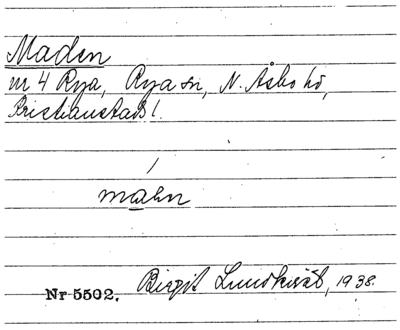 Maden
m 4 Rya, Rya sn, N. Åsbo hd,
Kristianstads l.
mahn
Nr 5502. Birgit Lundkvist, 1938.